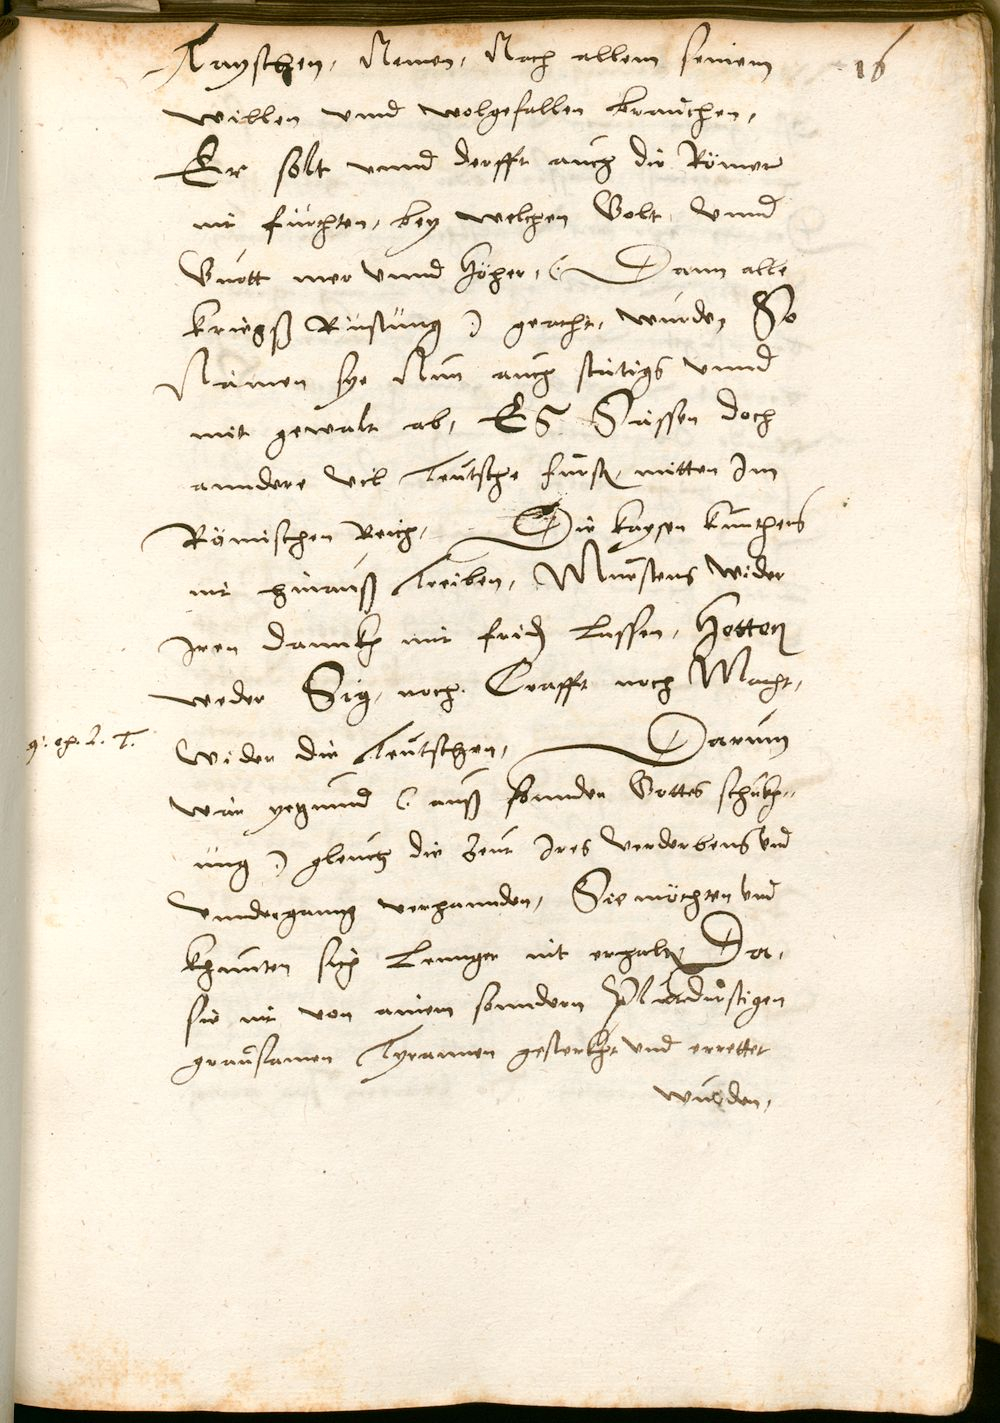 16
Rayschen, Nemen, Nach allem seinem
willen vnnd wolgefallen brauchen,
Er solt vnnd derfft auch die Römer
nit fürchten, bey welchen Golt vnnd
Guott mer vnnd höher, (: Dann alle
kriegß Rüstung :) geacht, wurden, So
Námen sye Nun auch stätigs vnnd
mit gewalt ab, Es Sässen doch
anndere vil Teutsche fürsten mitten Im
Römischen Reich, Die kayser kunthens
nit hinauß Treiben, Müestens wider
Iren dannkh mit friden Lassen, Hetten
weder Sig, noch Crafft noch Macht,
wider die Teutschen, Darum
wär yetzund (: auß sonnder Gottes schickh-
ung :) gleich die Zeit Ires verderbens vnd
vnderganng verhannden, Sie möchten vnd
khunten sich Lennger nit erhalten, Da,
sie nit von ainem sonndern Pluotdurstigen
grausamen Tyrannen gesterkht vnd errettet
wurden,